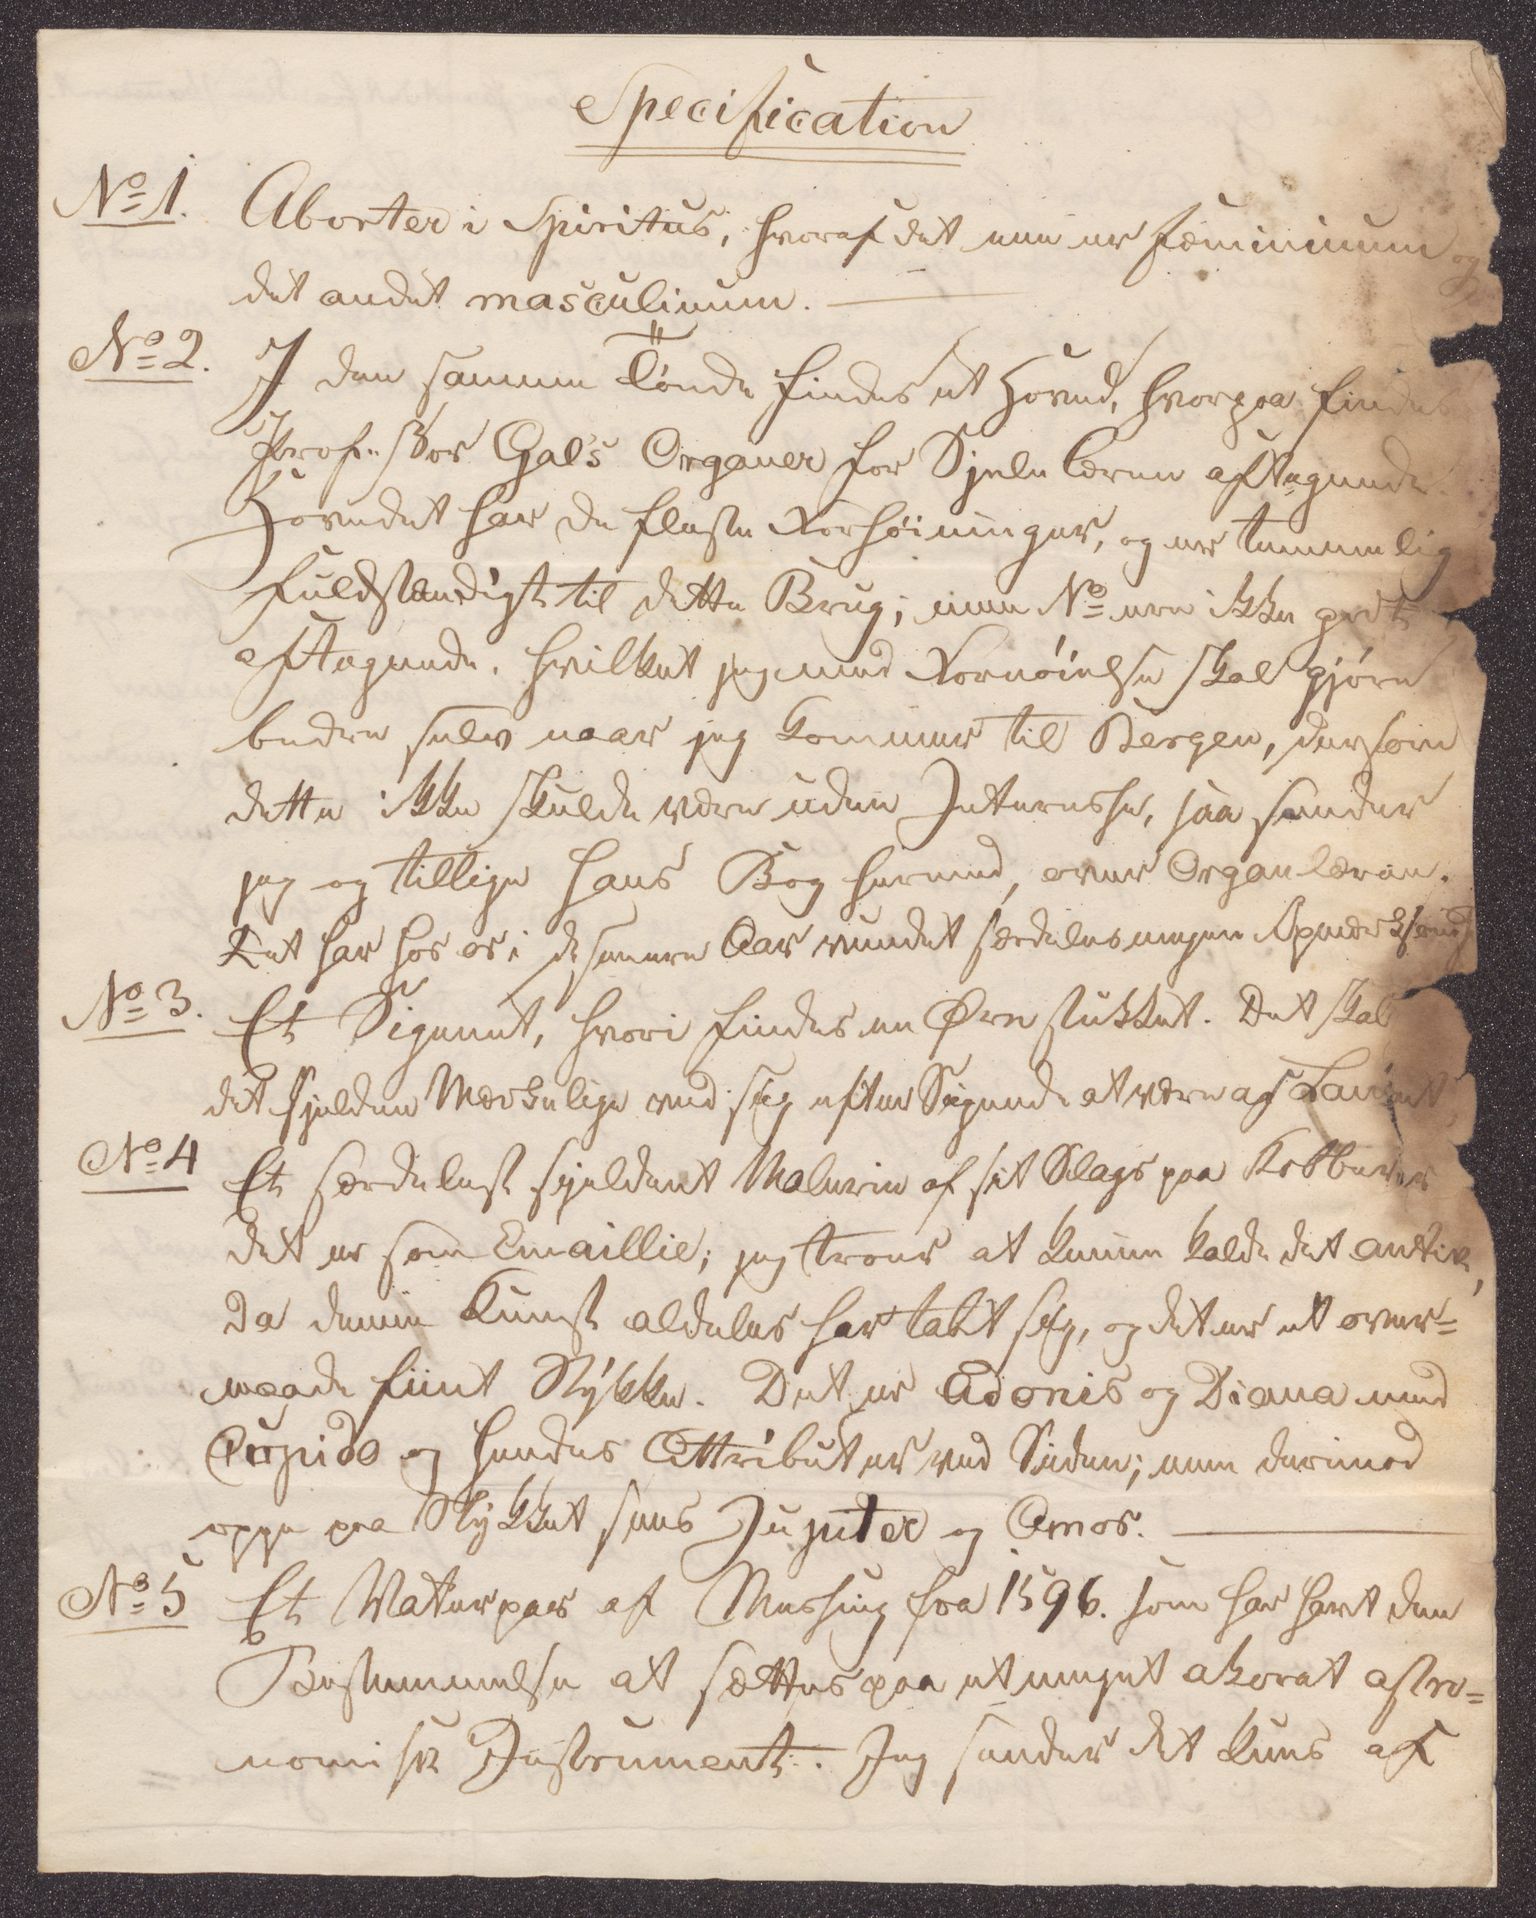 Specification
No 1. Aborter i Spiritus, hvoraf det ene er fæmininum og
det andet masculinum.
No 2. I den samme Tønde findes et Hoved, hvorpaa findes
Professor Gal's Organer for Sjele Læren aftegnede.
Hovedet har de fleste Forhöininger, og er temmelig
fuldstændigt til dette Brug; men No ere ikke godt
aftegnede. hvilket jeg med Fornöielse skal gjöre
bedre selv naar jeg kommer til Bergen, dersom
dette ikke skulde være uden Interesse, saa sender
jeg og tillige hans Bog hermed, over Organlæren.
Det har hos os i de senere Aar vundet særdeles megen
No 3. Et Signet, hvori findes en Ørn stukket. Det skal
det sjeldne Mærkelige ved sig efter Sigende at være af
No 4 Et særdelest sjeldent Malerie af sit Slags paa Kobber
det er som Emaillie; jeg troer at kunne kalde det antik,
da denne Kunst aldeles har tabt sig, og det er et over=
maade fiint Stykke. Det er Adonis og Diana med
Cupido og hendes Attributer ved Siden; men derimod
oppe paa Stykket sees Jupiter og Amor.
No 5 Et Vaterpas af Messing fra 1596. som har havt den
Bestemmelse at sættes paa et meget akorat astro=
nomisk Instrument. Jeg sender det kuns af